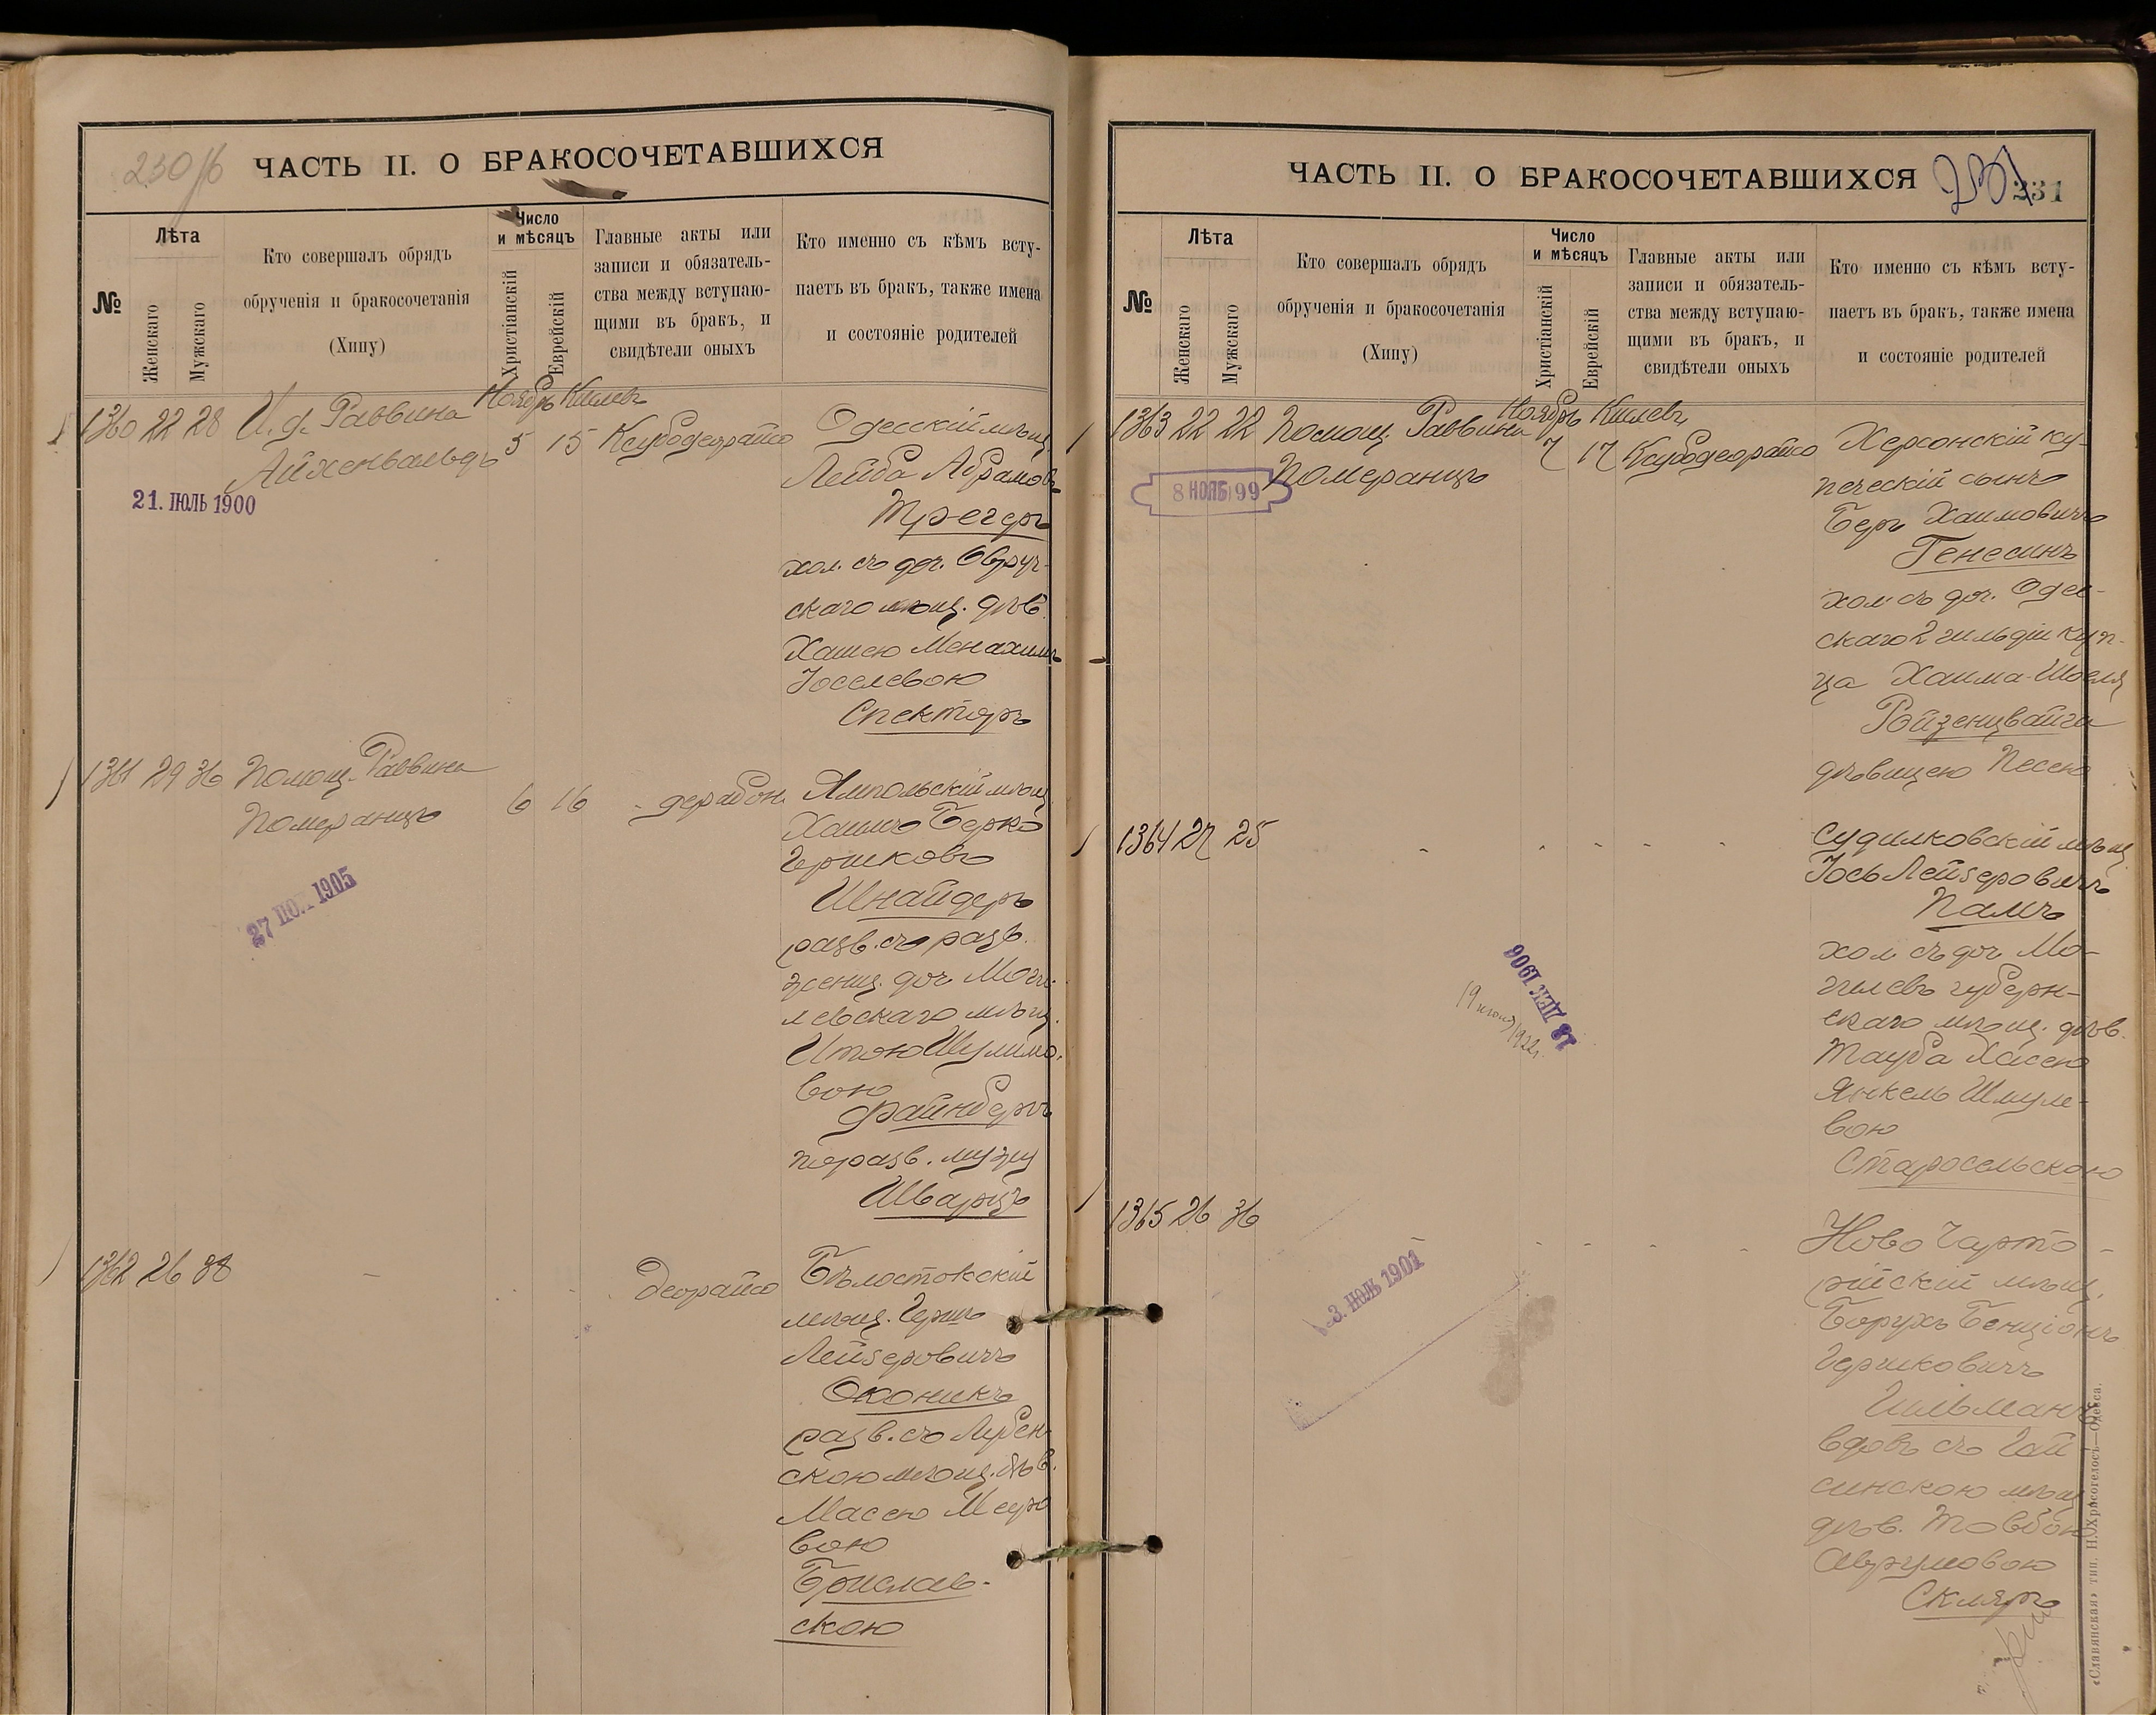 230/б
ЧАСТЬ II. О БРАКОСОЧЕТАВШИХСЯ
№
Лѣта
Женскаго
Мужскаго
Кто совершалъ обрядъ
обрученія и бракосочетанія
(Хипу)
Число
и мѣсяцъ
Христіанскій
Еврейскій
Главные акты или
записи и обязатель-
ства между вступаю-
щими въ бракъ, и
свидѣтели оныхъ
Кто именно съ кѣмъ всту-
паетъ въ бракъ, также имена
и состояніе родителей
Ноябрь Кислевъ
1360 22 28 И. д. Раввина 5 15 Ксубодеорайсо
Айхенвальдъ
21. ІЮЛЬ 1900
Одесскій мѣщ.
Лейба Абрамовъ
Трегеръ
хол. съ доч. Овруч-
скаго мѣщ. дѣв.
Хашею Менахимъ
Іоселевою
Спекторъ
1361 29 36 Помощ. Раввина 6 16 - дерабон.
Померанцъ
27 1905
Ямпольскій мѣщ.
Хаимъ Берко
Гершковъ
Шнайдеръ
разв. съ разв.
женщ. доч. Моги-
левскаго мѣщ.
Итою Шулимо-
вою
Файнбергъ
по разв. мужу
Шварцъ
1362 26 38 - деорайсо
Бѣлостокскій
мѣщ. Гершъ
Лейзеровичъ
Оконикъ
разв. съ Лубен-
скою мѣщ. дѣв.
Масею Мееро
вою
Брислав-
скою
ЧАСТЬ II. О БРАКОСОЧЕТАВШИХСЯ
231
№
Лѣта
Женскаго
Мужскаго
Кто совершалъ обрядъ
обрученія и бракосочетанія
(Хипу)
Число
и мѣсяцъ
Христіанскій
Еврейскій
Главные акты или
записи и обязатель-
ства между вступаю-
щими въ бракъ, и
свидѣтели оныхъ
Кто именно съ кѣмъ всту-
паетъ въ бракъ, также имена
и состояніе родителей
Ноябрь Кислевъ
1363 22 22 Помощ. Раввина 7 17 Ксубодеорайсо
Померанцъ
8 НОЯБ 99
Херсонскій ку-
печескій сынъ
Беръ Хаимовичъ
Генесинъ
хол. съ доч. Одес-
скаго 2 гильдіи куп-
ца Хаима-Шоеля
Ройзенцвайга
дѣвицею Песею
1364 27 25 - - - - -
Судилковскій мѣщ.
Іось Лейзеровичъ
Палъ
хол съ доч. Мо-
гилевъ губерн-
скаго мѣщ. дѣв.
Тауба Хасею
Янкель Шмуле-
вою
Старосельскою
18 ДЕК 1906
19 1922г.
1365 26 36 - - - - -
3. ІЮЛЬ 1901
Ново Чарто-
рійскій мѣщ.
Борухъ Бенціонъ
Гершковичъ
Гильманъ
вдовъ съ Гай
синскою мѣщ.
дѣв. Товбою
Аврумовою
Скляръ
«Славянская» тип. Н. Хрисогелосъ—Одесса.